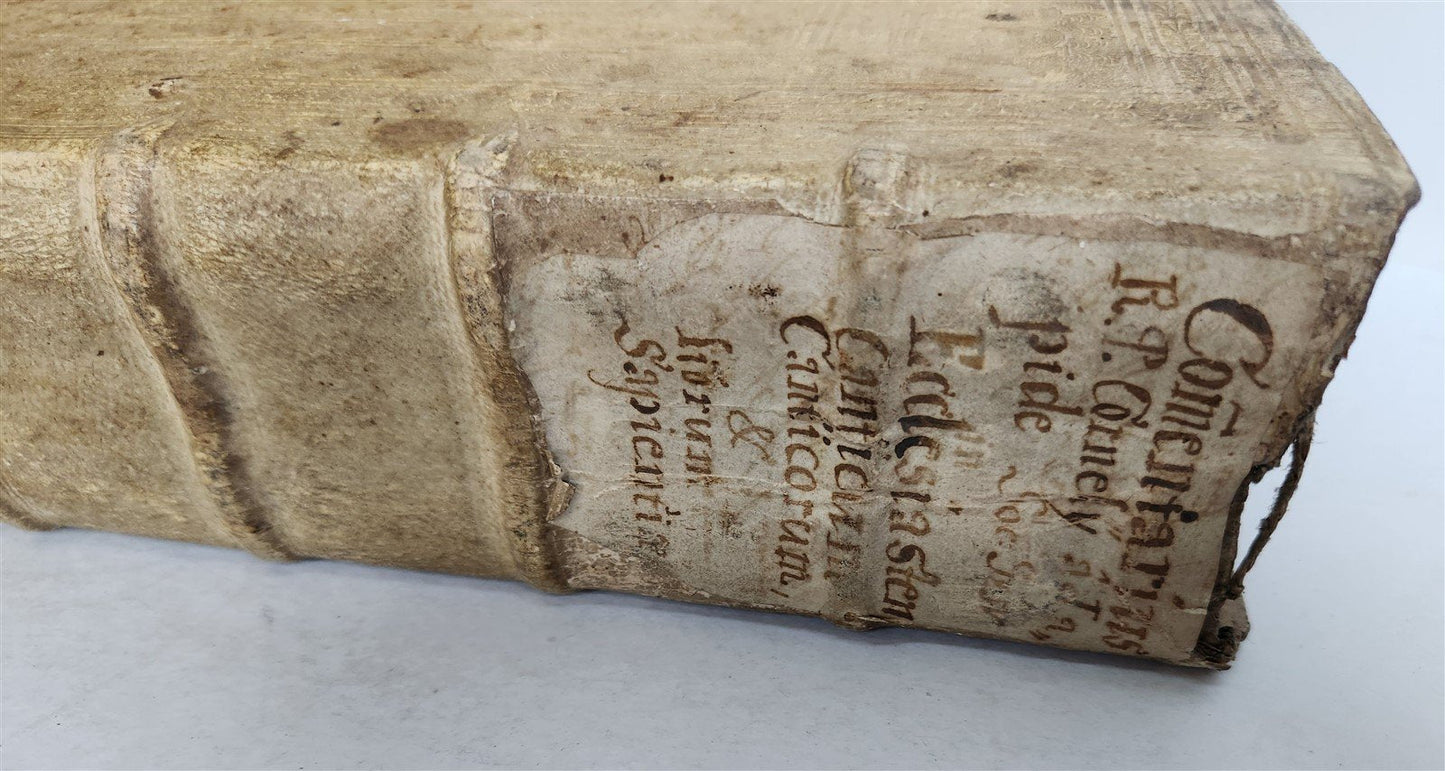 Com̄entarius
R. P. Cornelÿ a La
pide Soc. Jesu
in
Ecclesiasten
Canticum
Canticorum,
&
librum
Sapientiæ